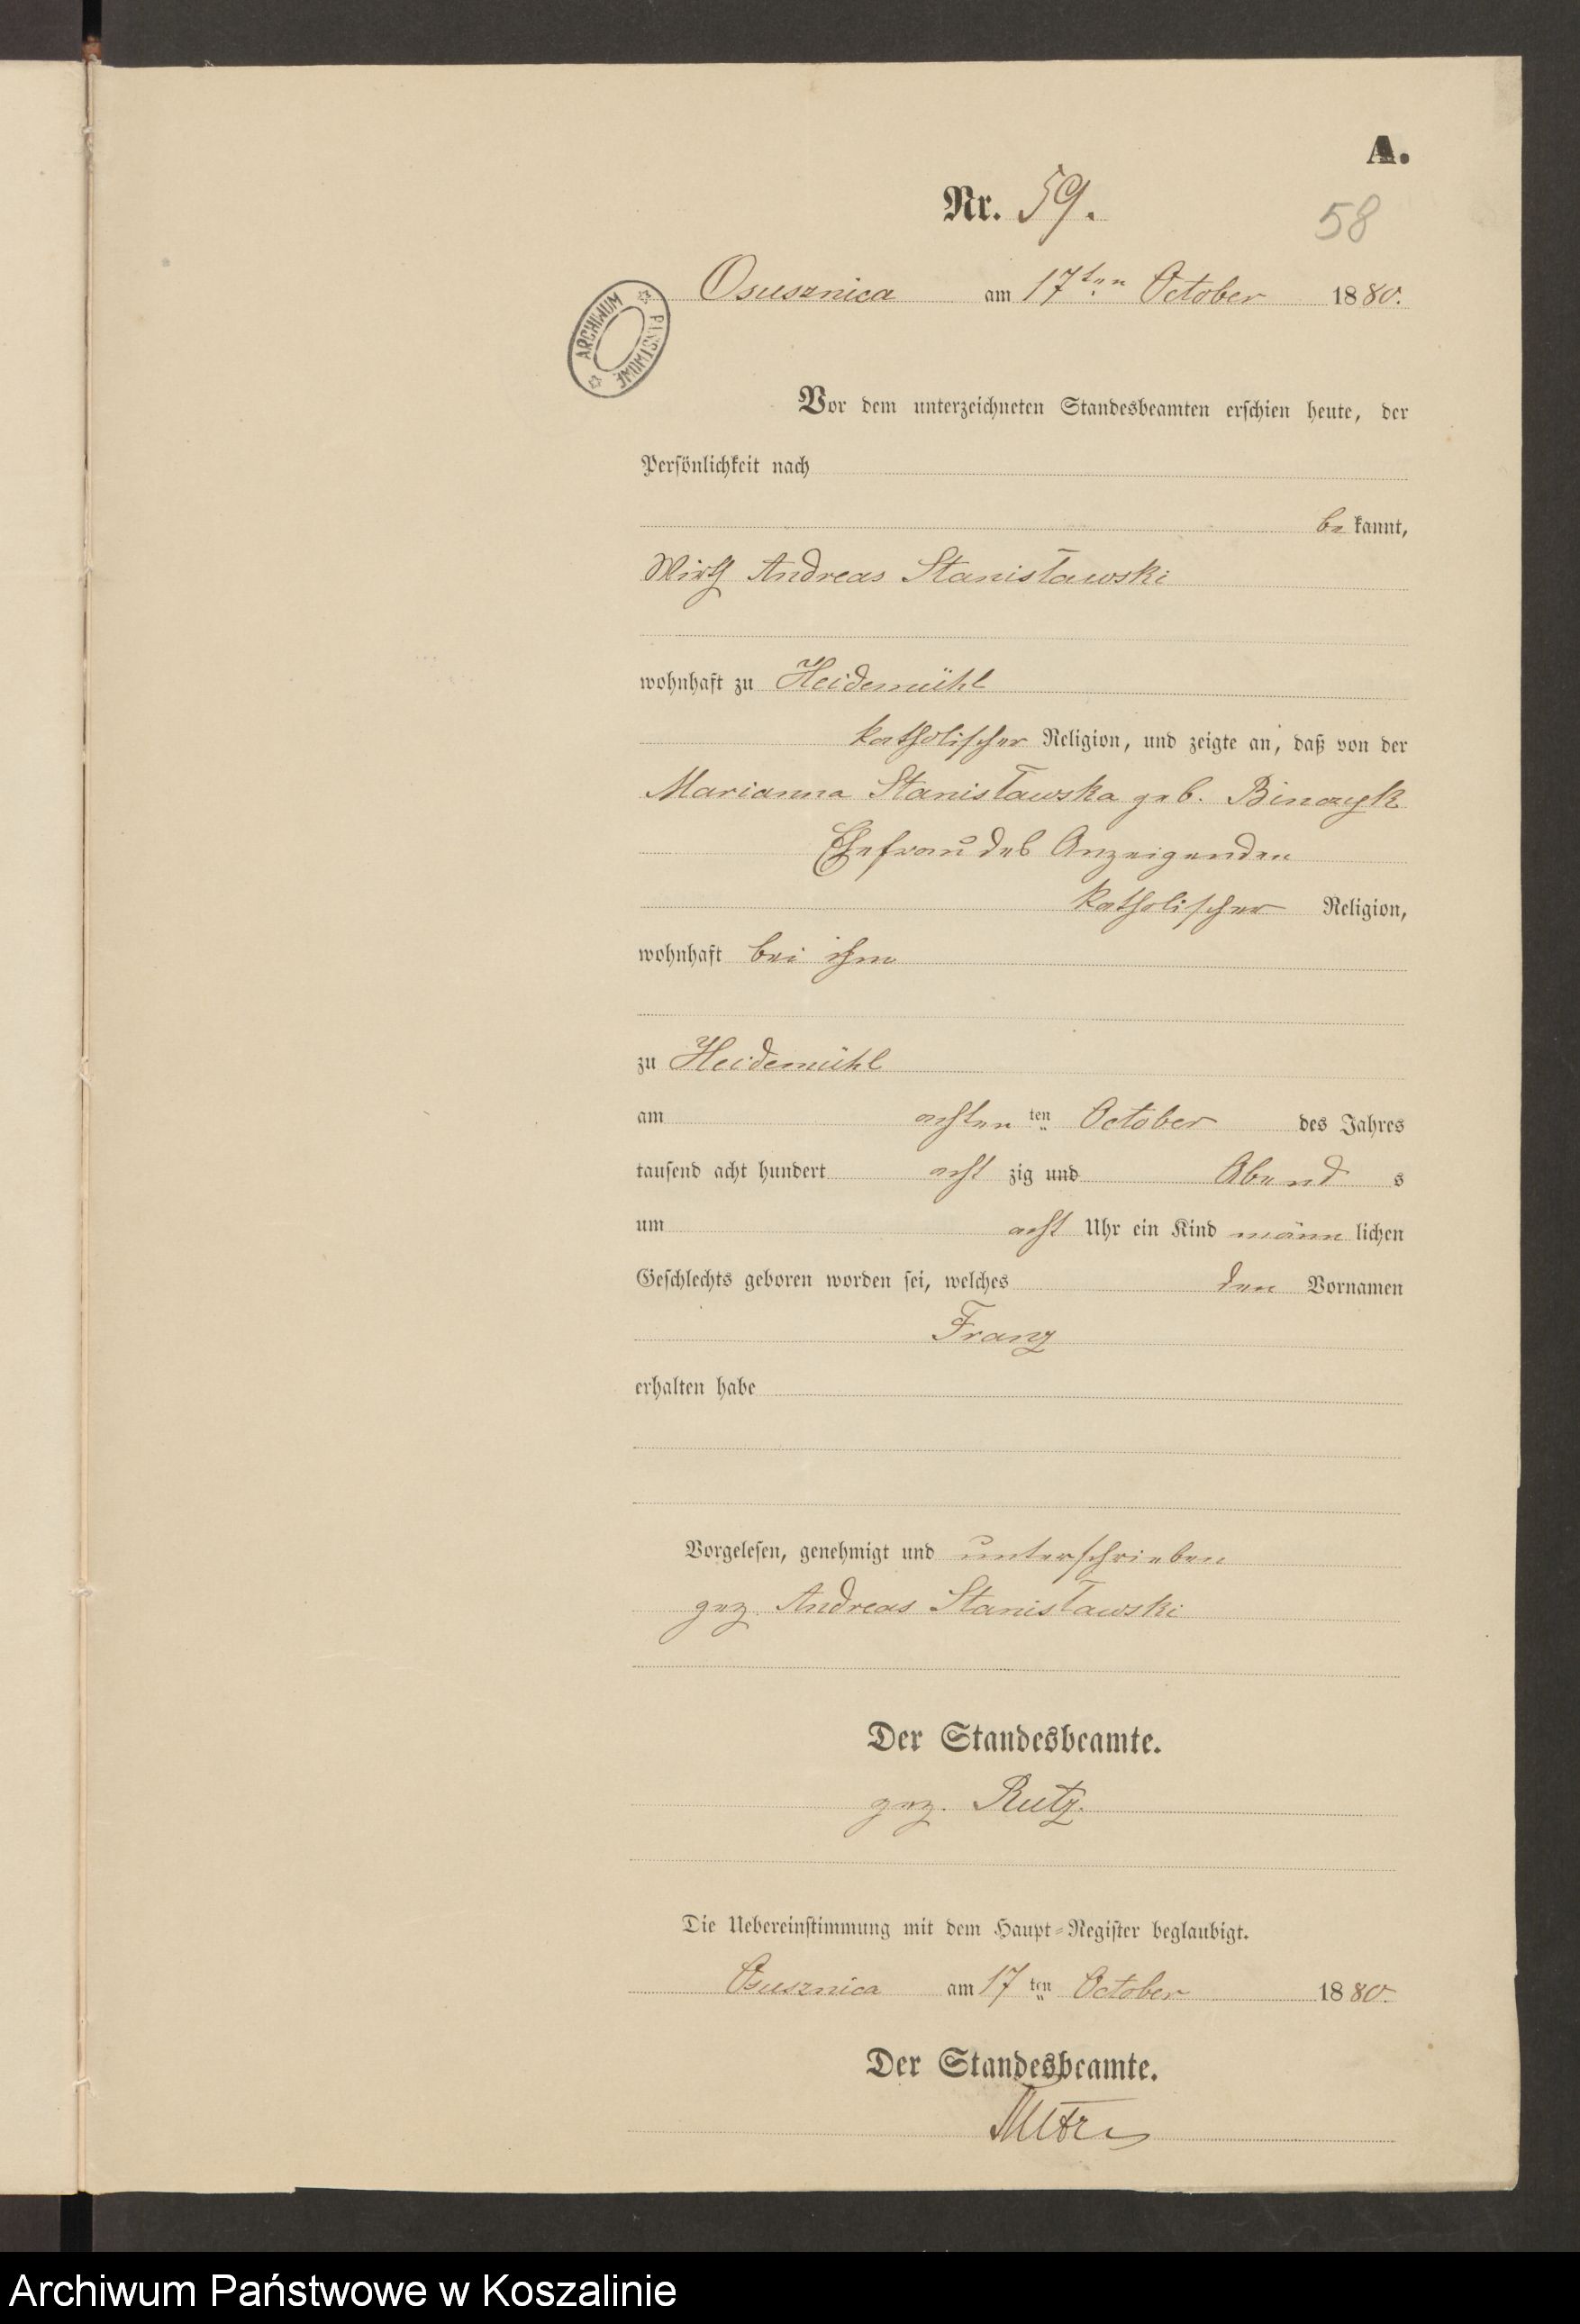 A.
Nr. 59.
58
Osusznica am 17ten October 1880.
ARCHIWUM PAŃSTWOWE
Vor dem unterzeichneten Standesbeamten erschien heute, der
Persönlichkeit nach
bekannt,
Wirth Andreas Stanisławski
wohnhaft zu Heidemühl
katholischer Religion, und zeigte an, daß von der
Marianna Stanisławska geb.
Ehefrau des Anzeigenden
katholischer Religion,
wohnhaft bei ihm
zu Heidemühl
am achten ten October des Jahres
tausend acht hundert acht zig und Abend s
um acht Uhr ein Kind männ lichen
Geschlechts geboren worden sei, welches den Vornamen
Franz
erhalten habe
Vorgelesen, genehmigt und unterschrieben
gez. Andreas Stanisławski
Der Standesbeamte.
gez. Rutz.
Die Uebereinstimmung mit dem Haupt-Register beglaubigt.
Osusznica am 17 ten October 1880.
Der Standesbeamte.
Archiwum Państwowe w Koszalinie